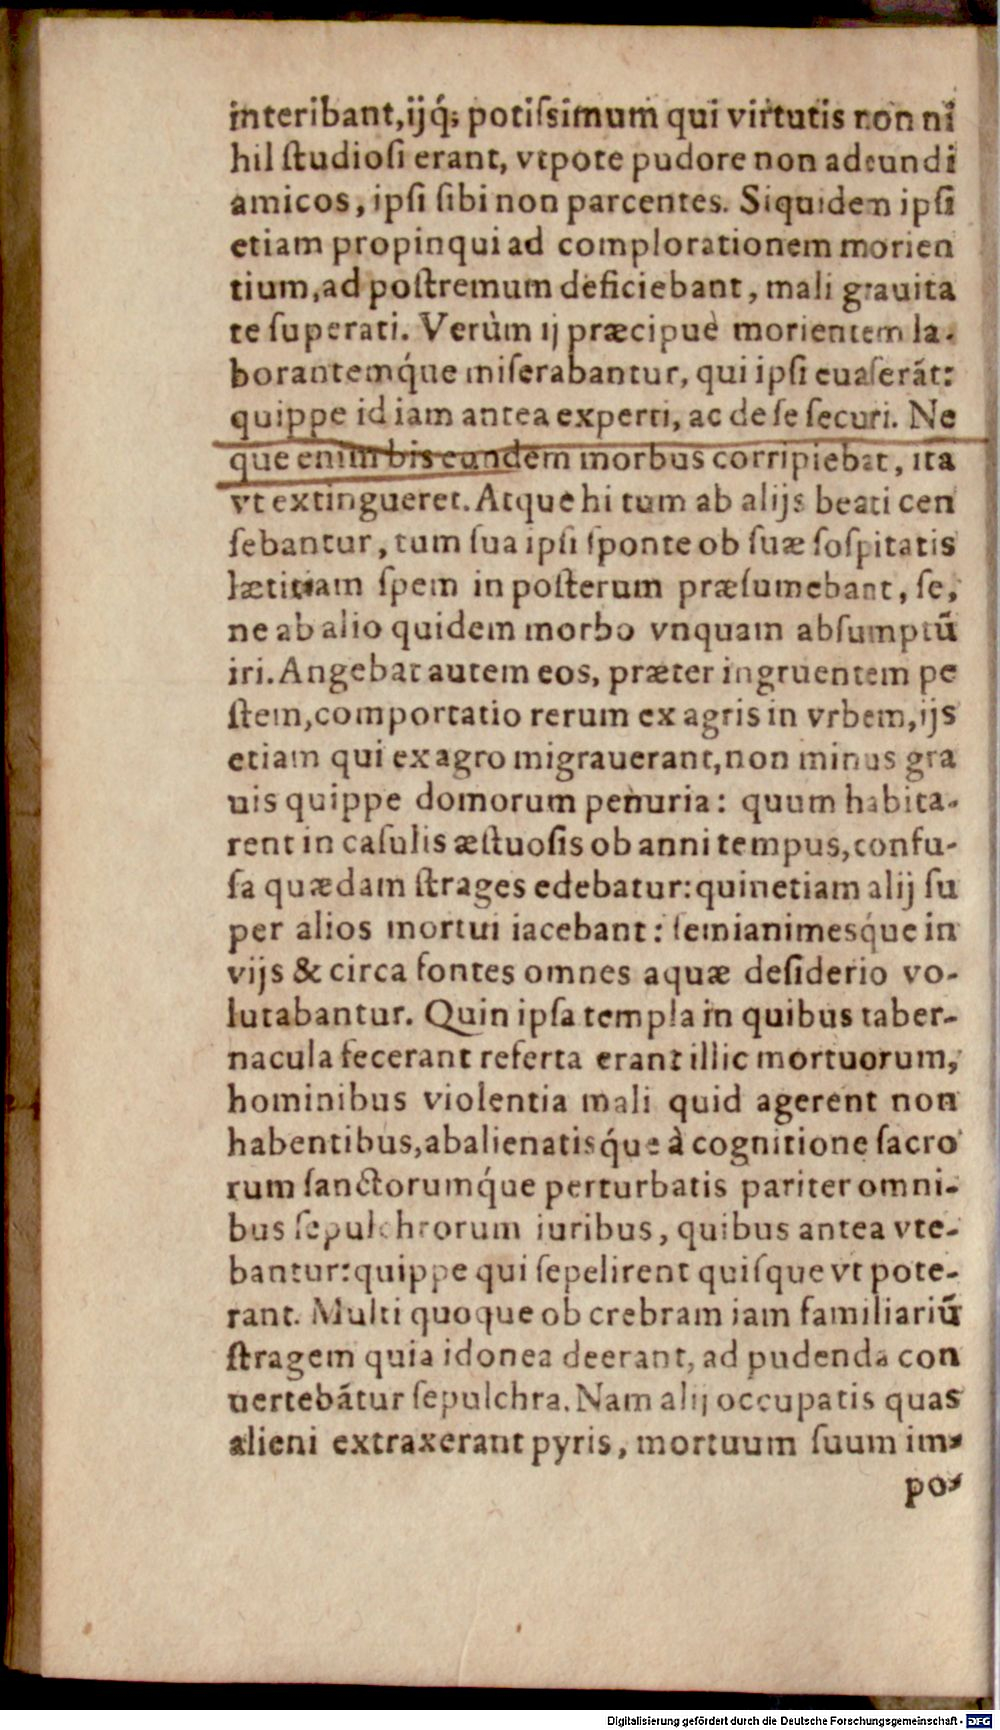 interibant,ijq́; potiſsimum qui virtutis non ni
hil ſtudioſi erant, vtpote pudore non adeundi
amicos, ipſi ſibi non parcentes. Siquidem ipſi
etiam propinqui ad complorationem morien
tium, ad poſtremum deficiebant, mali grauita
te ſuperati. Verùm ij præcipuè morientem la-
borantemq́ue miſerabantur, qui ipſi euaſerāt:
quippe id iam antea experti, ac de ſe ſecuri. Ne
que enim bis eundem morbus corripiebat, ita
vt extingueret. Atque hi tum ab alijs beati cen
ſebantur, tum ſua ipſi ſponte ob ſuæ ſoſpitatis
lætitiam ſpem in poſterum præſumebant, ſe,
ne ab alio quidem morbo vnquam abſumptū
iri. Angebat autem eos, præter ingruentem pe
ſtem, comportatio rerum ex agris in vrbem, ijs
etiam qui ex agro migrauerant, non minus gra
uis quippe domorum penuria: quum habita-
rent in caſulis æſtuoſis ob anni tempus, confu-
ſa quædam ſtrages edebatur: quinetiam alij ſu
per alios mortui iacebant: ſemianimesq́ue in
vijs & circa fontes omnes aquæ deſiderio vo-
lutabantur. Quin ipſa templa in quibus taber-
nacula fecerant referta erant illic mortuorum,
hominibus violentia mali quid agerent non
habentibus, abalienatisq́ue à cognitione ſacro
rum ſanctorumq́ue perturbatis pariter omni-
bus ſepulchrorum iuribus, quibus antea vte-
bantur: quippe qui ſepelirent quiſque vt pote-
rant. Multi quoque ob crebram iam familiariū
ſtragem quia idonea deerant, ad pudenda con
uertebātur ſepulchra. Nam alij occupatis quas
alieni extraxerant pyris, mortuum ſuum im-
po-
Digitalisierung gefördert durch die Deutsche Forschungsgemeinschaft - DFG